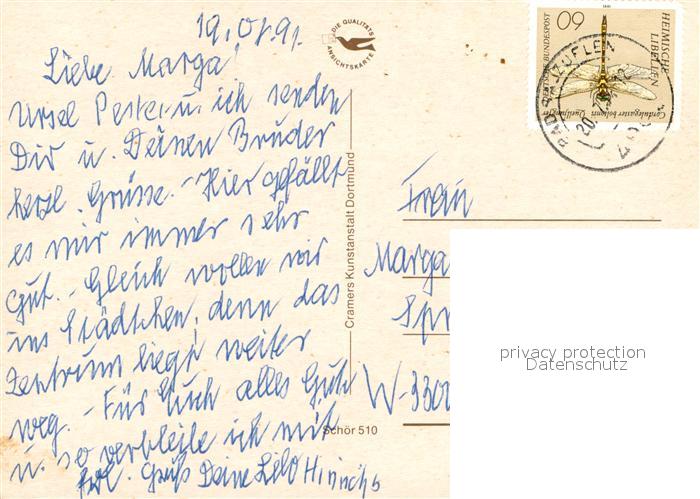 19.07.91.
Liebe Marga!
Ursel Peter u. ich senden
Dir u. Deinen Bruder
herzl. Grüsse. - Hier gefällt
es mir immer sehr
gut. - Gleich wollen wir
ins Städtchen, denn das
Zentrum liegt weiter
weg. - Für Euch alles Gute
u. so verbleibe ich mit
frdl. Gruß Deine Lilo Hinrichs
DIE QUALITÄTS
ANSICHTSKARTE
Cramers Kunstanstalt Dortmund
Schör 510
60
DEUTSCHE BUNDESPOST
HEIMISCHE
LIBELLEN
Cordulegaster boltoni Quelljungfer
BAD SALZUFLEN
Frau
Marga
Spr
W-3300
privacy protection
Datenschutz